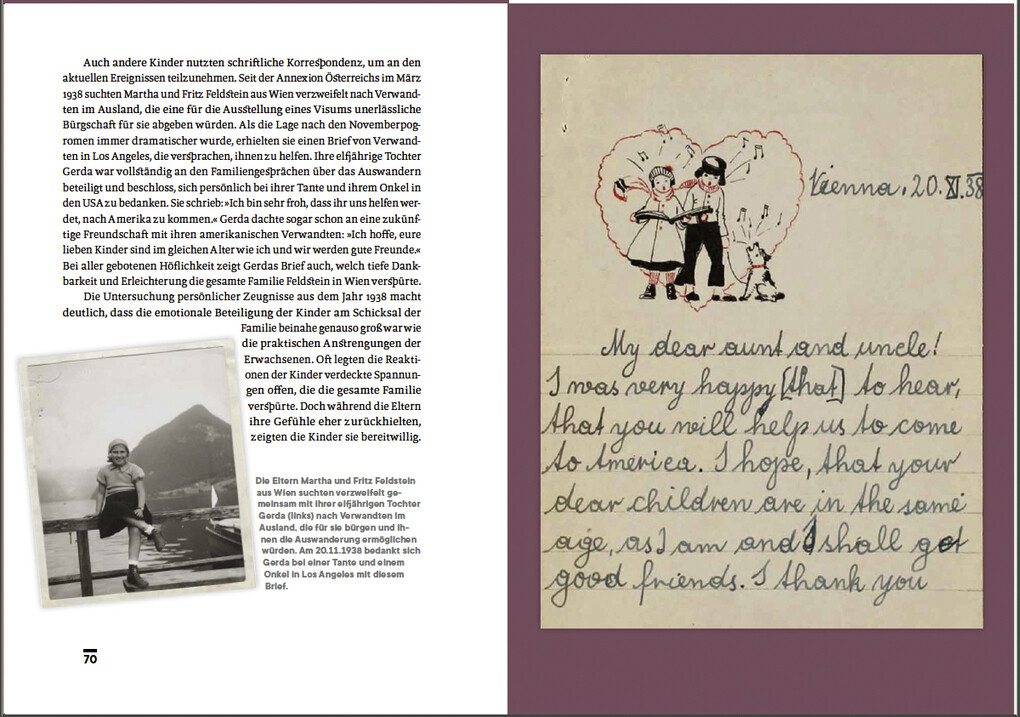 Auch andere Kinder nutzten schriftliche Korrespondenz, um an den
aktuellen Ereignissen teilzunehmen. Seit der Annexion Österreichs im März
1938 suchten Martha und Fritz Feldstein aus Wien verzweifelt nach Verwand-
ten im Ausland, die eine für die Ausstellung eines Visums unerlässliche
Bürgschaft für sie abgeben würden. Als die Lage nach den Novemberpog-
romen immer dramatischer wurde, erhielten sie einen Brief von Verwand-
ten in Los Angeles, die versprachen, ihnen zu helfen. Ihre elfjährige Tochter
Gerda war vollständig an den Familiengesprächen über das Auswandern
beteiligt und beschloss, sich persönlich bei ihrer Tante und ihrem Onkel in
den USA zu bedanken. Sie schrieb: »Ich bin sehr froh, dass ihr uns helfen wer-
det, nach Amerika zu kommen.« Gerda dachte sogar schon an eine zukünf-
tige Freundschaft mit ihren amerikanischen Verwandten: »Ich hoffe, eure
lieben Kinder sind im gleichen Alter wie ich und wir werden gute Freunde.«
Bei aller gebotenen Höflichkeit zeigt Gerdas Brief auch, welch tiefe Dank-
barkeit und Erleichterung die gesamte Familie Feldstein in Wien verspürte.
Die Untersuchung persönlicher Zeugnisse aus dem Jahr 1938 macht
deutlich, dass die emotionale Beteiligung der Kinder am Schicksal der
Familie beinahe genauso groß war wie
die praktischen Anstrengungen der
Erwachsenen. Oft legten die Reakti-
onen der Kinder verdeckte Spannun-
gen offen, die die gesamte Familie
verspürte. Doch während die Eltern
ihre Gefühle eher zurückhielten,
zeigten die Kinder sie bereitwillig.
Die Eltern Martha und Fritz Feldstein
aus Wien suchten verzweifelt ge-
meinsam mit ihrer elfjährigen Tochter
Gerda (links) nach Verwandten im
Ausland, die für sie bürgen und ih-
nen die Auswanderung ermöglichen
würden. Am 20.11.1938 bedankt sich
Gerda bei einer Tante und einem
Onkel in Los Angeles mit diesem
Brief.
70
Vienna, 20. XI. 38
My dear aunt and uncle!
I was very happy [that] to hear,
that you will help us to come
to America. I hope, that your
dear children are in the same
age, as I am and I shall get
good friends. I thank you